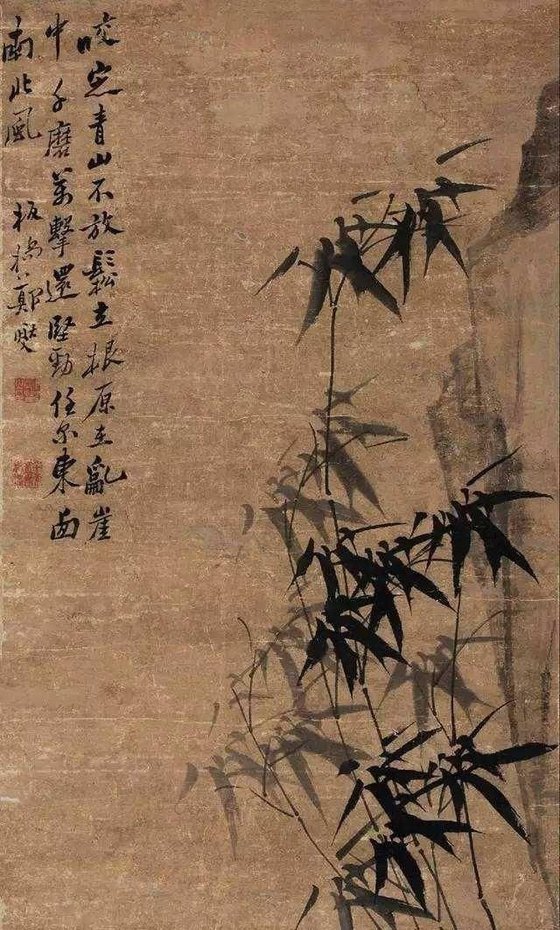 咬定青山不放鬆立根原在亂崖
中千磨萬擊還堅勁任尔東西
南北風
板橋鄭燮